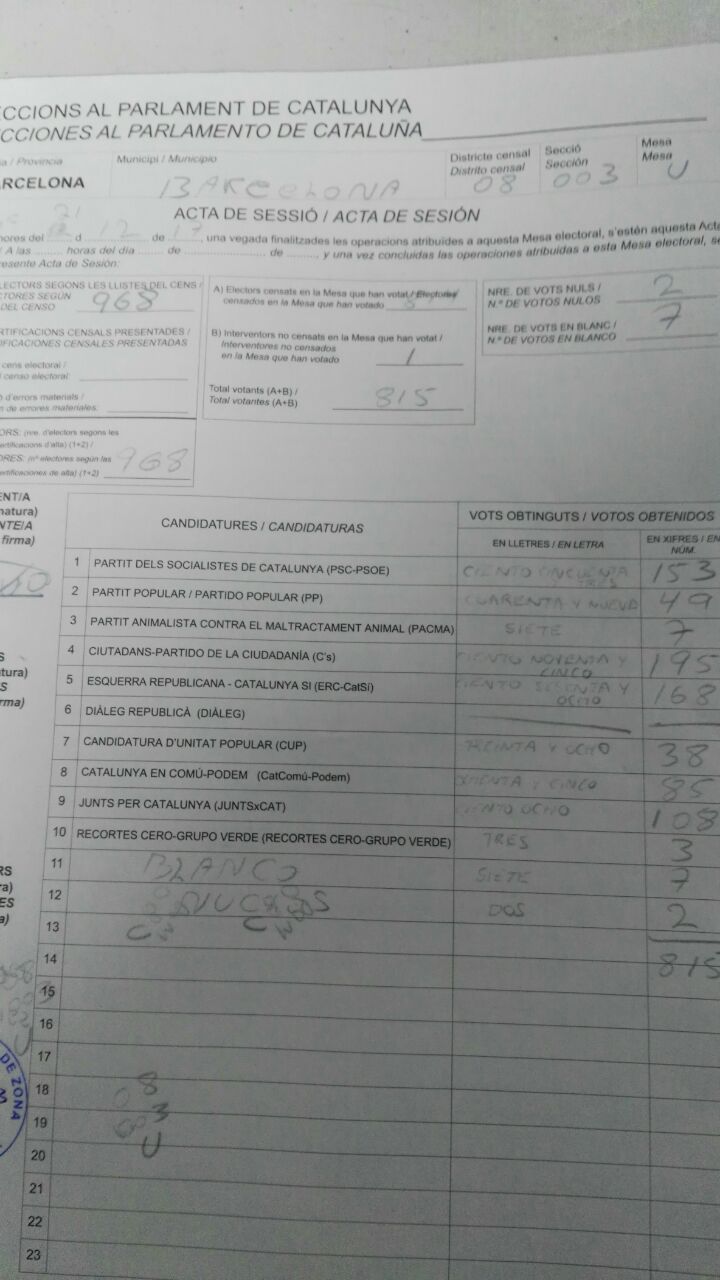 CCIONS AL PARLAMENT DE CATALUNYA
CCIONES AL PARLAMENTO DE CATALUÑA
a / Provincia Municipi / Municipio Districte censal Distrito censal Secció Sección Mesa Mesa
ARCELONA BARCELONA 08 003 U
ACTA DE SESSIÓ / ACTA DE SESIÓN
21
hores del d 12 de 17, una vegada finalitzades les operacions atribuïdes a aquesta Mesa electoral, s'estén aquesta Acta
A las horas del día de de y una vez concluidas las operaciones atribuidas a esta Mesa electoral, se
resente Acta de Sesión:
LECTORS SEGONS LES LLISTES DEL CENS /
TORES SEGÚN
DEL CENSO 968
RTIFICACIONS CENSALS PRESENTADES /
IFICACIONES CENSALES PRESENTADAS
cens electoral /
censo electoral:
d'errors materials /
n de errores materiales:
ORS: (nre. d'electors segons les
ertificacions d'alta) (1+2) /
ORES: (nº electores según las
ertificaciones de alta) (1+2) 968
A) Electors censats en la Mesa que han votat / Electores
censados en la Mesa que han votado
B) Interventors no censats en la Mesa que han votat /
Interventores no censados
en la Mesa que han votado 1
Total votants (A+B) /
Total votantes (A+B) 815
NRE. DE VOTS NULS /
N.º DE VOTOS NULOS 2
NRE. DE VOTS EN BLANC /
N.º DE VOTOS EN BLANCO 7
ENT/A
natura)
NTE/A
firma)
CANDIDATURES / CANDIDATURAS VOTS OBTINGUTS / VOTOS OBTENIDOS
EN LLETRES / EN LETRA EN XIFRES / EN NÚM.
1 PARTIT DELS SOCIALISTES DE CATALUNYA (PSC-PSOE) CIENTO CINCUENTA TRES 153
2 PARTIT POPULAR / PARTIDO POPULAR (PP) CUARENTA Y NUEVE 49
3 PARTIT ANIMALISTA CONTRA EL MALTRACTAMENT ANIMAL (PACMA) SIETE 7
4 CIUTADANS-PARTIDO DE LA CIUDADANÍA (C's) CIENTO NOVENTA Y CINCO 195
5 ESQUERRA REPUBLICANA - CATALUNYA SI (ERC-CatSí) CIENTO SESENTA Y OCHO 168
6 DIÀLEG REPUBLICÀ (DIÀLEG)
7 CANDIDATURA D'UNITAT POPULAR (CUP) TREINTA Y OCHO 38
8 CATALUNYA EN COMÚ-PODEM (CatComú-Podem) OCHENTA Y CINCO 85
9 JUNTS PER CATALUNYA (JUNTSxCAT) CIENTO OCHO 108
10 RECORTES CERO-GRUPO VERDE (RECORTES CERO-GRUPO VERDE) TRES 3
11 BLANCO SIETE 7
12 DOS 2
13
14 815
15
16
17
18 8
19 3
20 U
21
22
23
DE ZONA